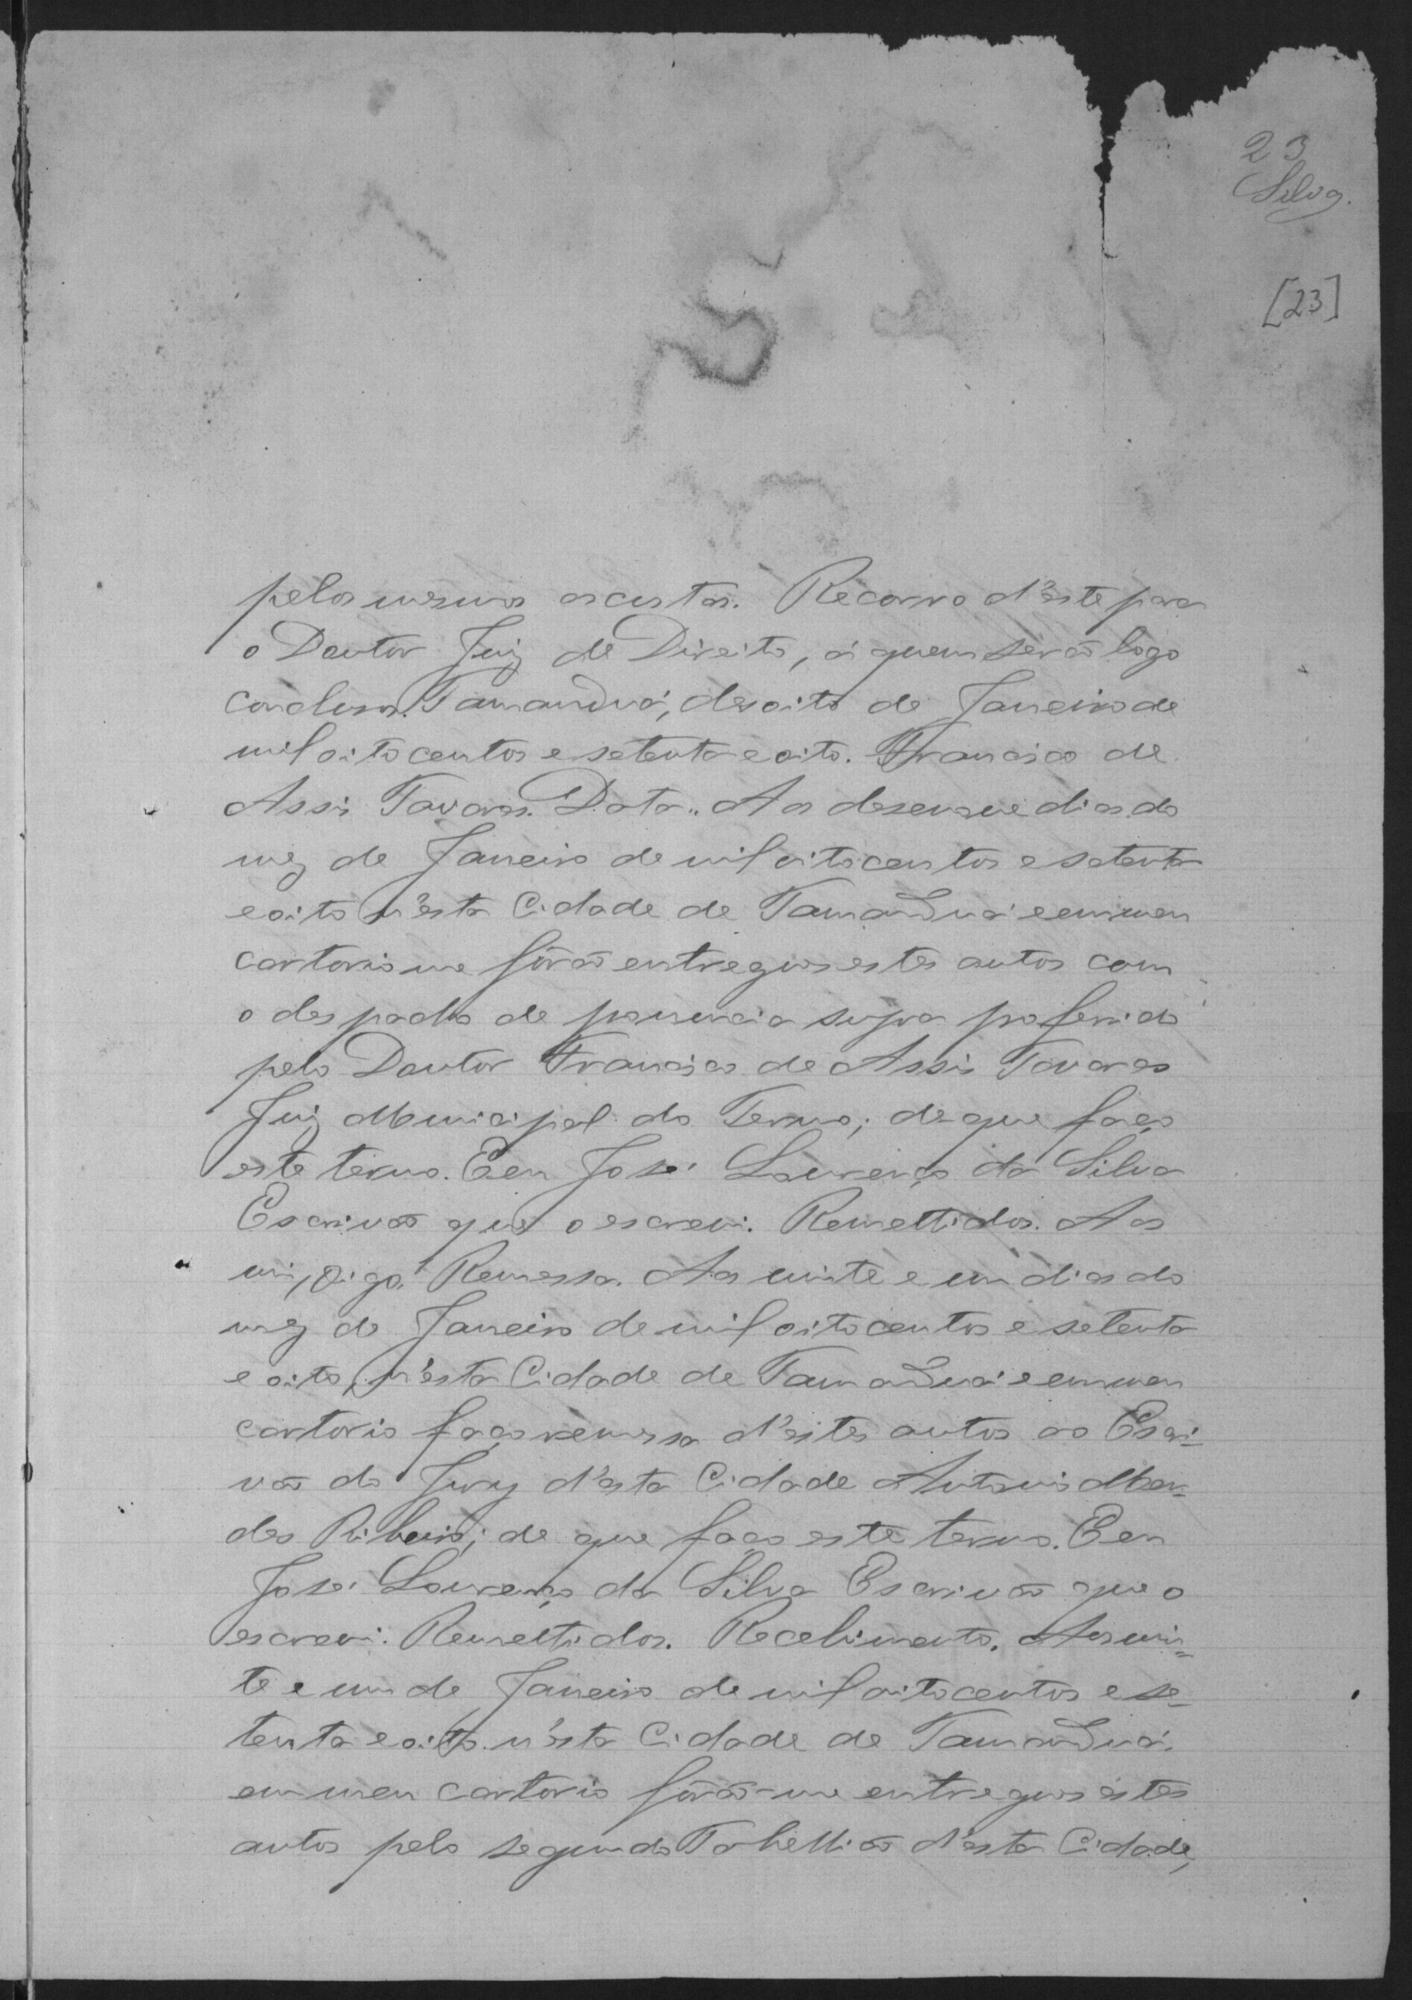 23
Silva.
[23]
pelos mesmos as custas. Recorro d'este para
o Doutor Juiz de Direito, á quem serão logo
conclusos. Tamanduá, desoito de Janeiro de
mil oito centos e setenta e oito. Francisco de
Assis Tavares. Data.. Aos desenove dias do
mez de Janeiro de mil oitocentos e setenta
e oito n'esta Cidade de Tamanduá e em meu
cartorio me fôrão entregues estes autos com
o despacho de pronuncia supra proferido
pelo Doutor Francisco de Assis Tavares
Juiz Municipal do Termo; de que faço
este termo. E eu José Lourenço da Silva
Escrivão que o escrevi. Remettidos. Aos
vin, digo, Remessa. Aos vinte e um dias do
mez de Janeiro de mil oitocentos e setenta
e oito, n'esta Cidade de Tamanduá e em meu
cartorio faço remessa d'estes autos ao Escri-
vão do Jury d'esta Cidade Antonio Men-
des Ribeiro; de que faço este termo. E eu
José Lourenço da Silva Escrivão que o
escrevi. Remettidos. Recebimento. Aos vin-
te e um de Janeiro de mil oitocentos e se-
tenta e oito n'esta Cidade de Tamanduá.
em meu cartorio fôrão-me entregues estes
autos pelo segundo Tabellião d'esta Cidade,